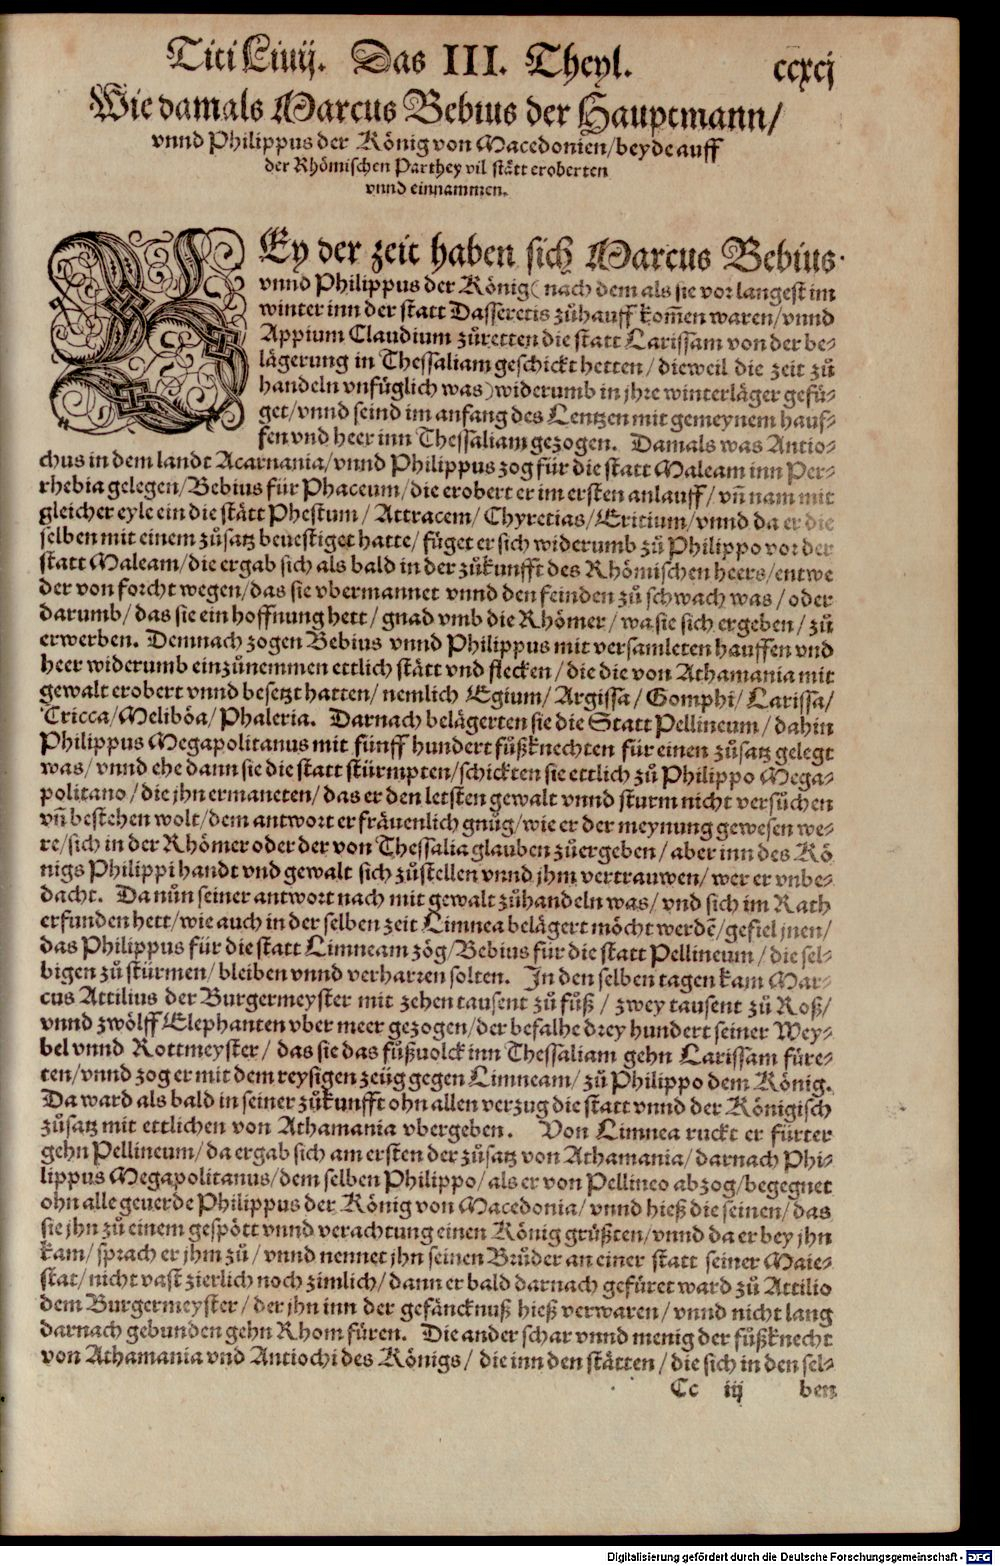 Titi Liuij. Das III. Theyl. ccxcj
Wie damals Marcus Bebius der Hauptmann/
vnnd Philippus der König von Macedonien/beyde auff
der Rhömischen Parthey vil stätt eroberten
vnnd einnammen.
BEy der zeit haben sich Marcus Bebius
vnnd Philippus der König( nach dem als sie vor langest im
winter inn der statt Dasseretis zůhauff kom̄en waren/vnnd
Appium Claudium zůretten die statt Larissam von der be-
lägerung in Thessaliam geschickt hetten/ dieweil die zeit zů
handeln vnfüglich was)widerumb in jhre winterläger gefü-
get/vnnd seind im anfang des Lentzen mit gemeynem hauf-
fen vnd heer inn Thessaliam gezogen. Damals was Antio-
chus in dem landt Acarnania/vnnd Philippus zog für die statt Maleam inn Per-
rhebia gelegen/Bebius für Phaceum/die erobert er im ersten anlauff/vn̄ nam mit
gleicher eyle ein die stätt Phestum/ Attracem/ Chyretias/Eritium/vnnd da er die
selben mit einem zůsatz beuestiget hatte/ füget er sich widerumb zů Philippo vor der
statt Maleam/die ergab sich als bald in der zůkunfft des Rhömischen heers/entwe
der von forcht wegen/das sie vbermannet vnnd den feinden zů schwach was/oder
darumb/das sie ein hoffnung hett/ gnad vmb die Rhömer/wa sie sich ergeben/zů
erwerben. Demnach zogen Bebius vnnd Philippus mit versamleten hauffen vnd
heer widerumb einzůnemmen ettlich stätt vnd flecken/die die von Athamania mit
gewalt erobert vnnd besetzt hatten/ nemlich Egium/ Argissa/ Gomphi/ Larissa/
Tricca/Meliböa/Phaleria. Darnach belägerten sie die Statt Pellineum/dahin
Philippus Megapolitanus mit fünff hundert fůßknechten für einen zůsatz gelegt
was/ vnnd ehe dann sie die statt stürmpten/schickten sie ettlich zů Philippo Mega-
politano/die jhn ermaneten/das er den letsten gewalt vnnd sturm nicht versůchen
vn̄ bestehen wolt/dem antwort er fräuenlich gnůg/wie er der meynung gewesen we-
re/sich in der Rhömer oder der von Thessalia glauben zůergeben/aber inn des Kö
nigs Philippi handt vnd gewalt sich zůstellen vnnd jhm vertrauwen/wer er vnbe-
dacht. Da nůn seiner antwort nach mit gewalt zůhandeln was/ vnd sich im Rath
erfunden hett/wie auch in der selben zeit Limnea belägert möcht werdē/gefiel jnen/
das Philippus für die statt Limneam zög/Bebius für die statt Pellineum/die sel-
bigen zů stürmen/bleiben vnnd verharren solten. In den selben tagen kam Mar-
cus Attilius der Burgermeyster mit zehen tausent zů fůß/ zwey tausent zů Roß/
vnnd zwölff Elephanten vber meer gezogen/der befalhe drey hundert seiner Wey-
bel vnnd Rottmeyster/ das sie das fůßuolck inn Thessaliam gehn Larissam füre-
ten/vnnd zog er mit dem reysigen zeüg gegen Limneam/ zů Philippo dem König.
Da ward als bald in seiner zůkunfft ohn allen verzug die statt vnnd der Königisch
zůsatz mit ettlichen von Athamania vbergeben. Von Limnea ruckt er fürter
gehn Pellineum/da ergab sich am ersten der zůsatz von Athamania/darnach Phi-
lippus Megapolitanus/dem selben Philippo/als er von Pellineo abzog/begegnet
ohn alle geuerde Philippus der König von Macedonia/vnnd hieß die seinen/das
sie jhn zů einem gespött vnnd verachtung einen König grüßten/vnnd da er bey jhn
kam/ sprach er jhm zů/ vnnd nennet jhn seinen Brůder an einer statt seiner Maie-
stat/nicht vast zierlich noch zimlich/dann er bald darnach gefüret ward zů Attilio
dem Burgermeyster/der jhn inn der gefäncknuß hieß verwaren/vnnd nicht lang
darnach gebunden gehn Rhom füren. Die ander schar vnnd menig der fůßknecht
von Athamania vnd Antiochi des Königs/ die inn den stätten/die sich in den sel-
Cc iij ben
Digitalisierung gefördert durch die Deutsche Forschungsgemeinschaft - DFG